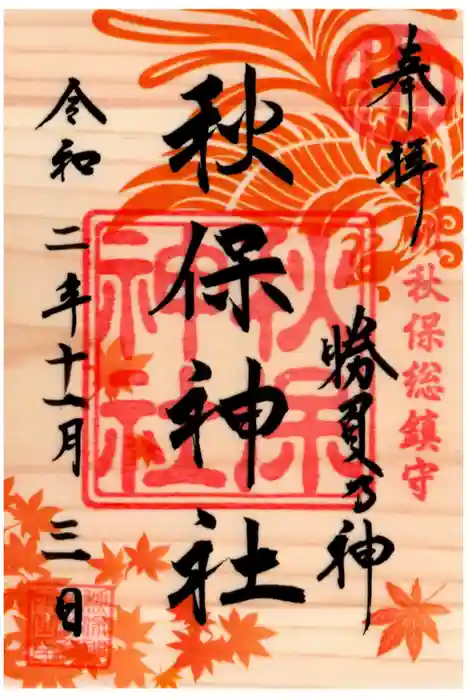 奉拝
秋保総鎮守
勝負乃神
秋保神社
秋保神社
令和二年十一月三日